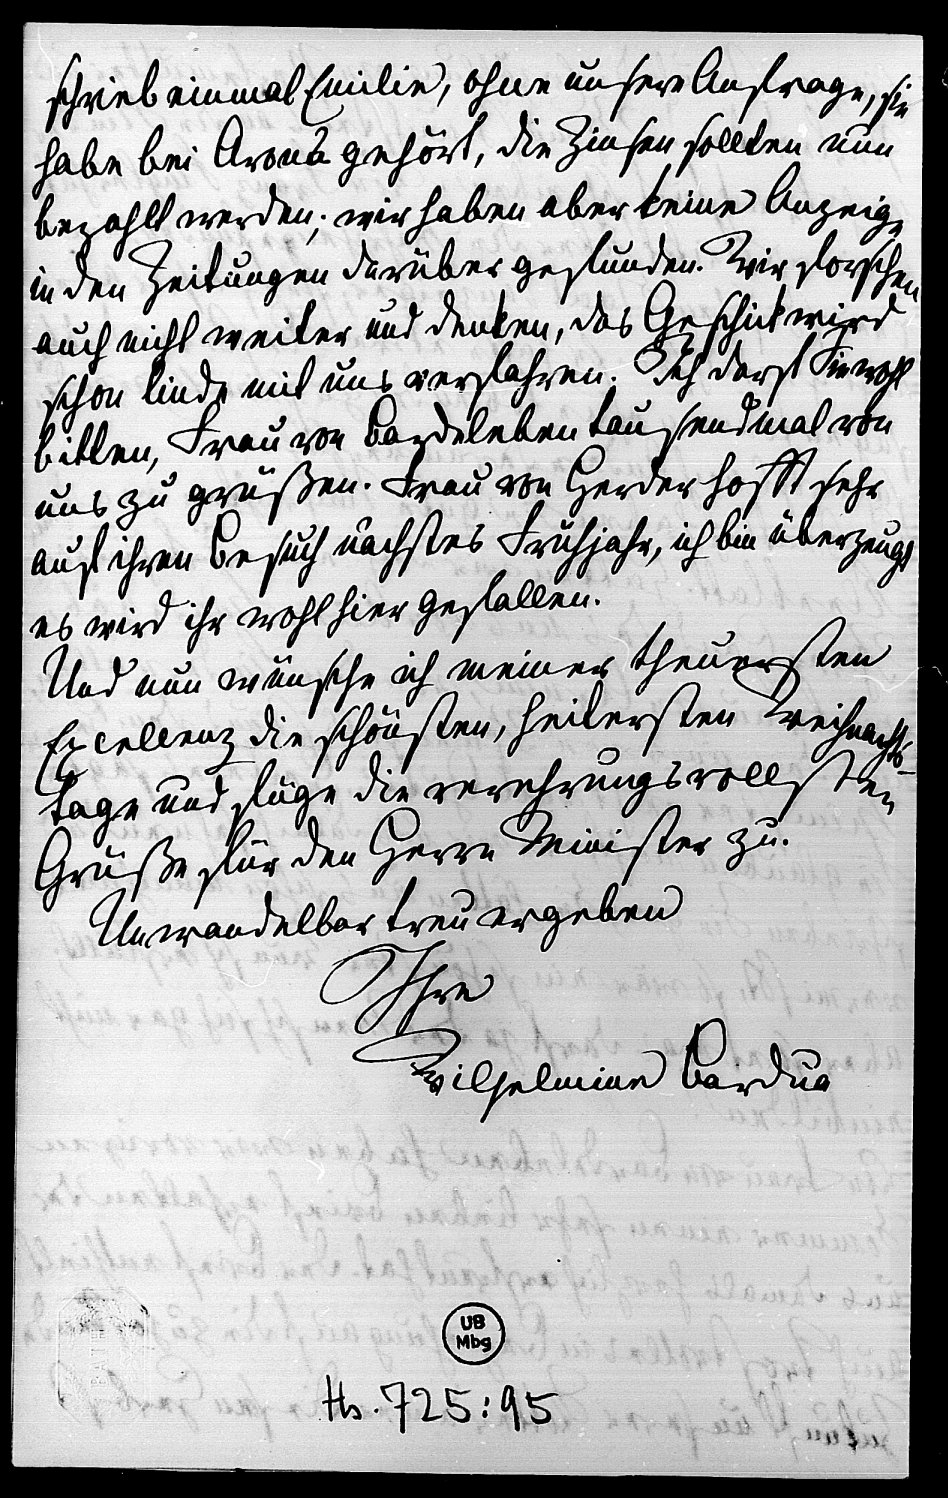 schrieb einmal Emilie, ohne unsere Anfrage, sie
habe bei Arons gehört, die Zinsen sollten nun
bezahlt werden; wir haben aber keine Anzeige
in den Zeitungen darüber gefunden. Wir forschen
auch nicht weiter und denken, das Geschick wird
schon linde mit uns verfahren. Ich darf Sie wohl
bitten, Frau von Bardeleben tausendmal von
uns zu grüßen. Frau von Herder hofft sehr
auf ihren Besuch nächstes Frühjahr, ich bin überzeugt
es wird ihr wohl hier gefallen.
Und nun wünsche ich meiner theuersten
Excellenz die schönsten, heitersten Weihnachts-
tage und füge die verehrungsvollsten
Grüße für den Herrn Minister zu.
Unwandelbar treu ergeben
Ihre
Wilhelmine Bardua
UB
Mbg
Hs. 725:95